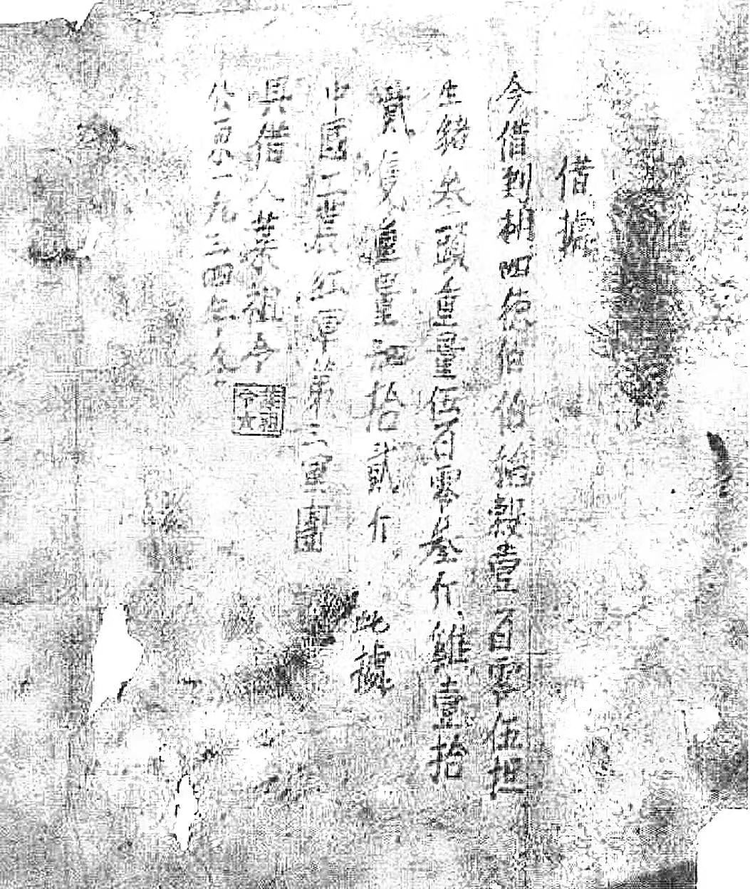 借據
今借到胡四德伯伯稻穀壹百零伍担
生豬叁頭重量伍百零叁斤雞壹拾
貳隻重量四拾貳斤 此據
中國工農紅軍第三軍團
具借人葉祖令
公原一九三四年冬